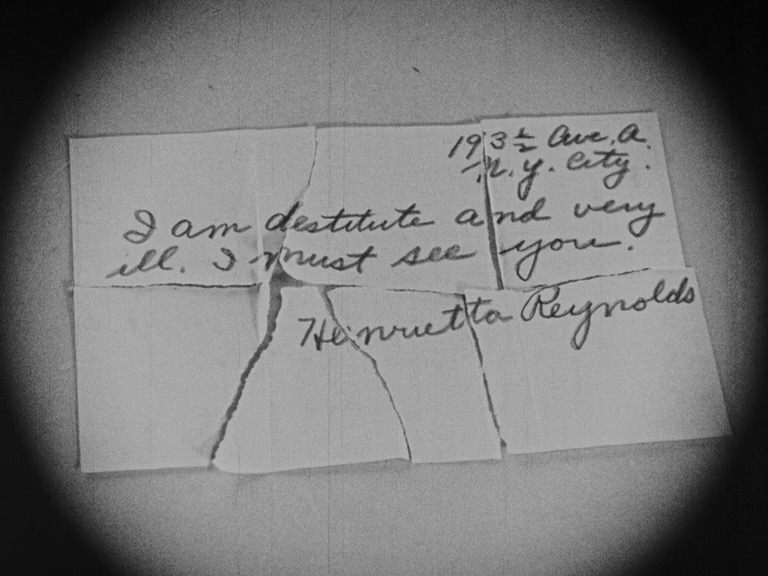 193½ Ave. A.
N. Y. City.
I am destitute and very
ill. I must see you.
Henrietta Reynolds